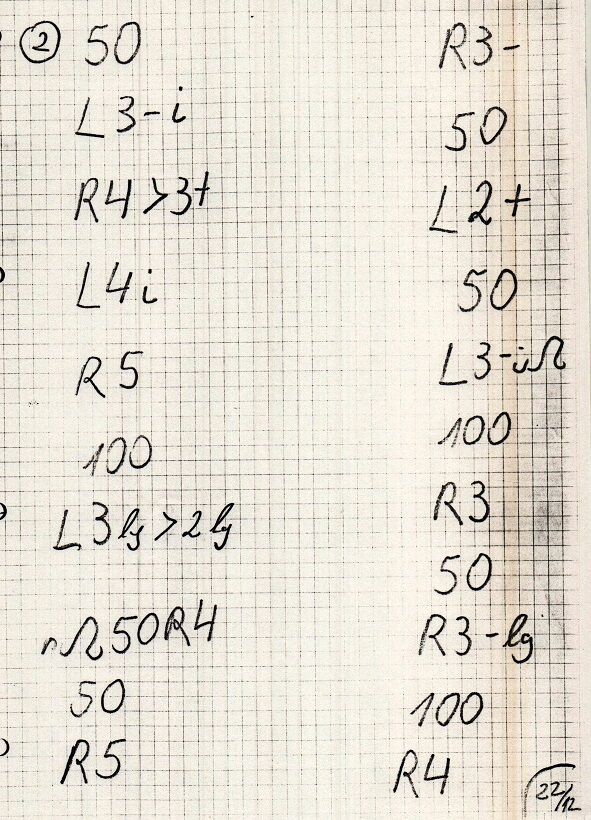 ② 50
L3-i
R4>3+
L4i
R5
100
L3lg>2lg
rΩ50R4
50
R5
R3-
50
L2+
50
L3-iΩ
100
R3
50
R3-lg
100
R4
22/12